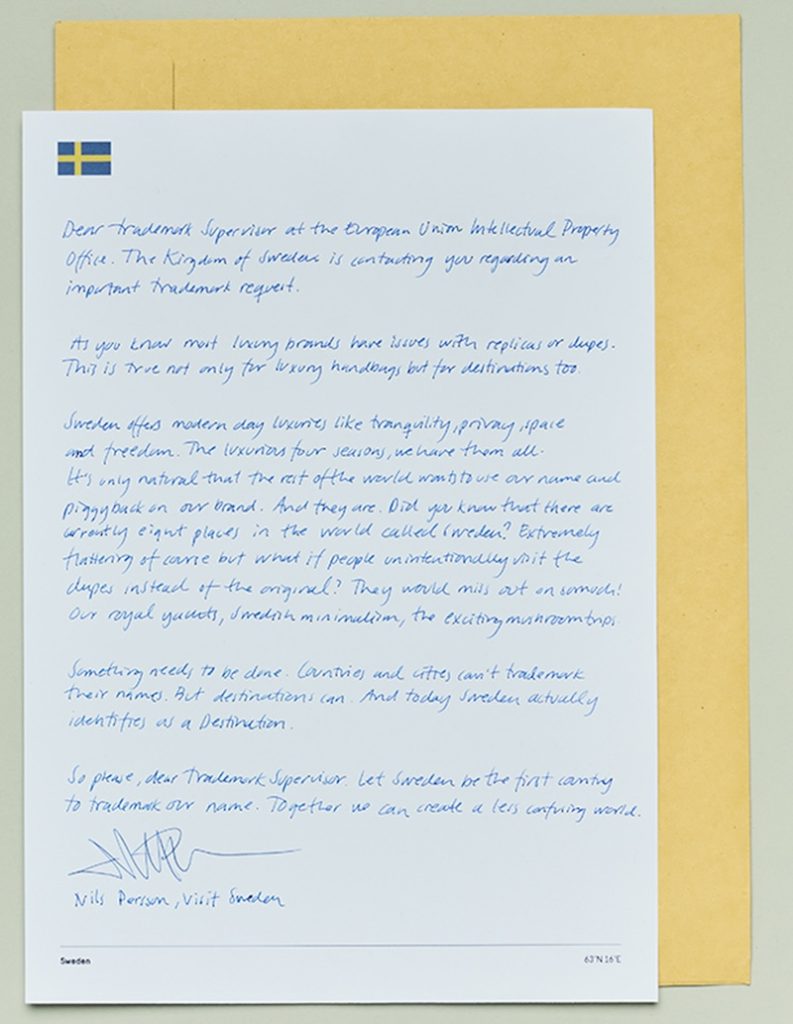 Dear Trademark Supervisor at the European Union Intellectual Property
Office. The Kingdom of Sweden is contacting you regarding an
important trademark request.
As you know most luxury brands have issues with replicas or dupes.
This is true not only for luxury handbags but for destinations too.
Sweden offers modern day luxuries like tranquility, privacy, space
and freedom. The luxurious four seasons, we have them all.
It's only natural that the rest of the world wants to use our name and
piggyback on our brand. And they are. Did you know that there are
currently eight places in the world called Sweden? Extremely
flattering of course but what if people unintentionally visit the
dupes instead of the original? They would miss out on so much!
Our royal yachts, Swedish minimalism, the exciting mushroom trips.
Something needs to be done. Countries and cities can't trademark
their names. But destinations can. And today Sweden actually
identifies as a Destination.
So please, dear Trademark Supervisor. Let Sweden be the first country
to trademark our name. Together we can create a less confusing world.
Nils Persson, Visit Sweden
Sweden
63°N 16°E